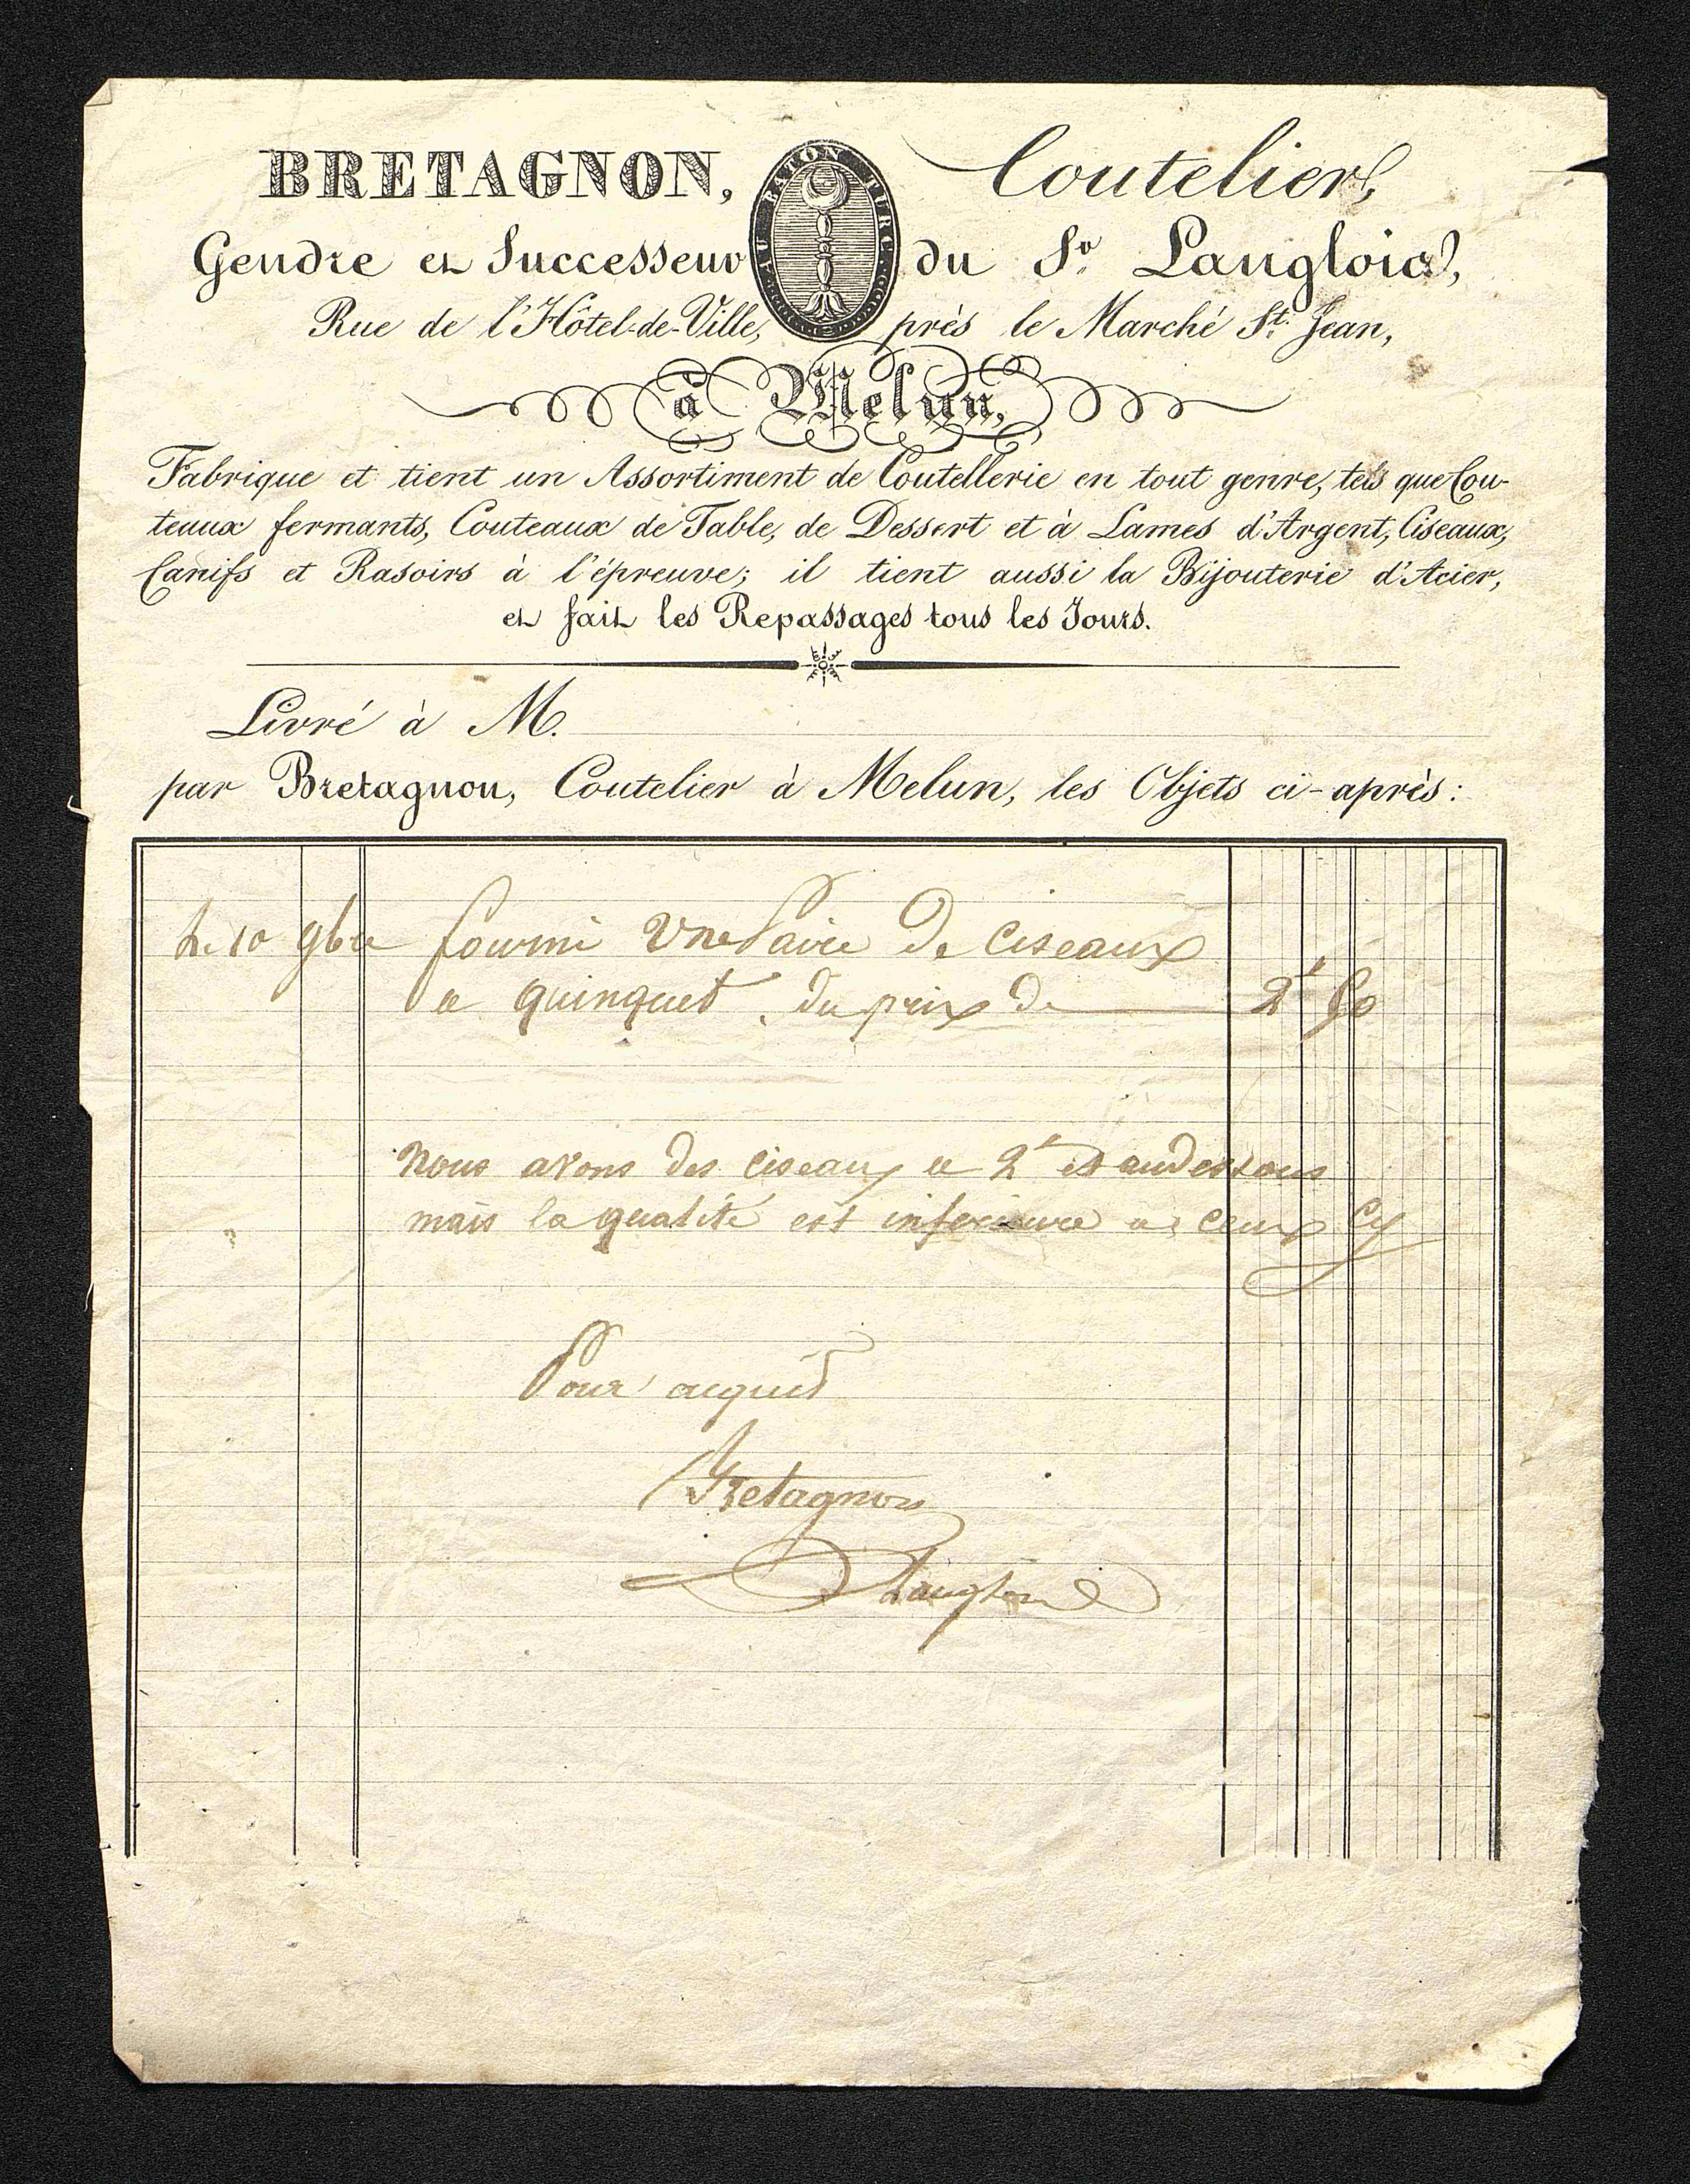 BRETAGNON, Coutelier,
AU BATON TURC.
Gendre et Successeur du Sr. Langlois,
Rue de l'Hôtel-de-Ville, près le Marché St. Jean,
à Melun,
Fabrique et tient un Assortiment de Coutellerie en tout genre, tels que Cou-
teaux fermants, Couteaux de Table, de Dessert et à Lames d'Argent, Ciseaux,
Canifs et Rasoirs à l'épreuve; il tient aussi la Bijouterie d'Acier,
et fait les Repassages tous les Jours.
Livré à M.
par Bretagnon, Coutelier à Melun, les Objets ci-après:
Le 10 9bre fourni Une Paire De Ciseaux
a quinquet. du prix De 2f 50
Nous avons des Ciseaux a 2f et audessous
mais la qualité est inferieure a ceux Cy
Pour acquit
Bretagnon
Langlois